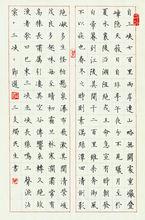 自三峽七百里中兩岸連山略無闕處重巖疊
嶂隱天蔽日自非亭午夜分不見曦月至
於夏水襄陵沿溯阻絕或王命急宣有時朝
發白帝暮到江陵其間千二百里雖乘奔御風
不以疾也春冬之時則素湍綠潭迴清倒影
絕巘多生怪柏懸泉瀑布飛漱其間清榮峻
茂良多趣味每至晴初霜旦林寒澗肅常有
高猿長嘯屬引淒異空谷傳響哀轉久絕故
漁者歌曰巴東三峽巫峽長猿鳴三聲淚沾
裳 三峽 酈道元